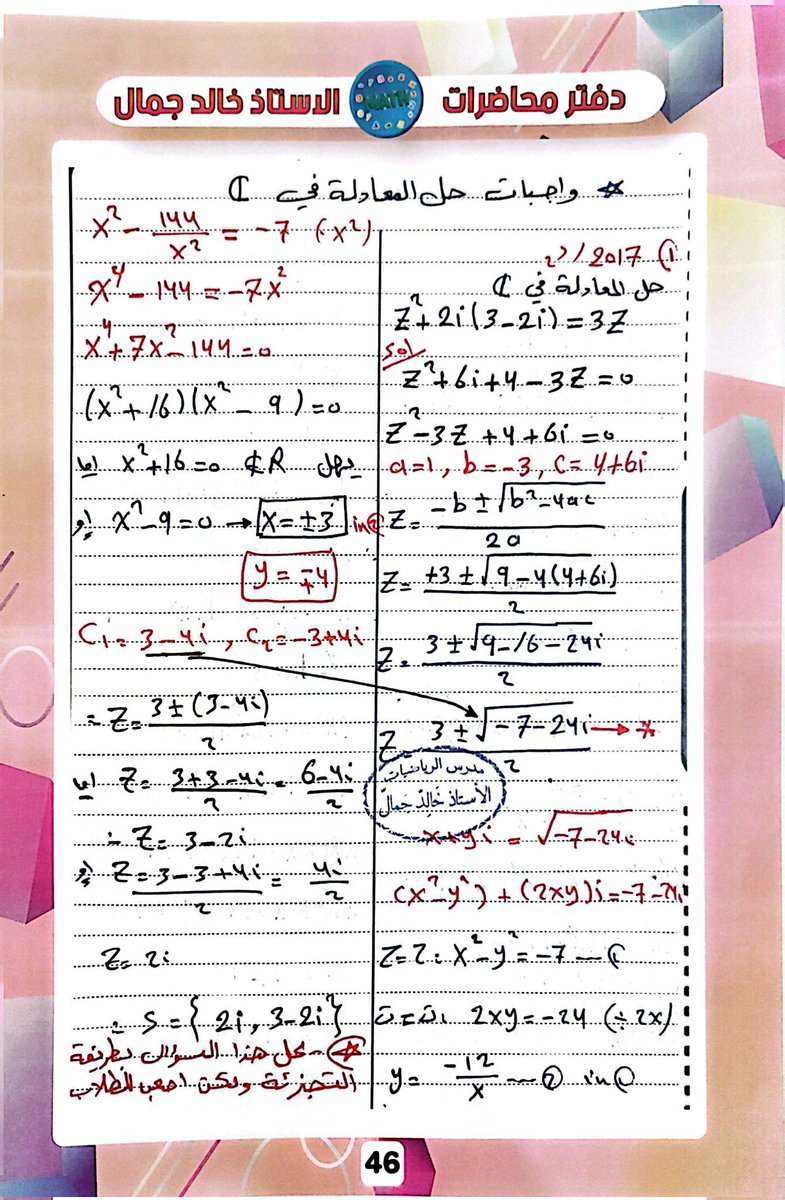 دفتر محاضرات MATH الاستاذ خالد جمال
* واجبات حل المعادلة في ℂ
1) 2017 / د2
حل المعادلة في ℂ
Z² + 2i(3-2i) = 3Z
sol/
Z² + 6i + 4 - 3Z = 0
Z² - 3Z + 4 + 6i = 0
a=1, b=-3, C=4+6i
Z = \frac{-b ± √(b²-4ac)}{2a}
Z = \frac{+3 ± √(9-4(4+6i))}{2}
Z = \frac{3 ± √(9-16-24i)}{2}
Z = \frac{3 ± √(-7-24i)}{2} → *
مدرس الرياضيات
الأستاذ خالد جمال
x+yi = √(-7-24i)
(x²-y²) + (2xy)i = -7-24i
ح=ح: x²-y² = -7 — ①
ت=ت: 2xy = -24 (÷2x)
y = \frac{-12}{x} — ② in ①
x² - \frac{144}{x²} = -7 (·x²)
x⁴ - 144 = -7x²
x⁴ + 7x² - 144 = 0
(x²+16)(x²-9) = 0
اما x²+16=0 ∉R يهمل
او x²-9=0 → x=±3 in②
y = ∓4
C₁ = 3-4i, C₂ = -3+4i
∴ Z = \frac{3±(3-4i)}{2}
اما Z = \frac{3+3-4i}{2} = \frac{6-4i}{2}
∴ Z = 3-2i
او Z = \frac{3-3+4i}{2} = \frac{4i}{2}
Z = 2i
∴ S = {2i, 3-2i}
* يحل هذا السؤال بطريقة
التجزئة ولكن اصعب للطلاب
46